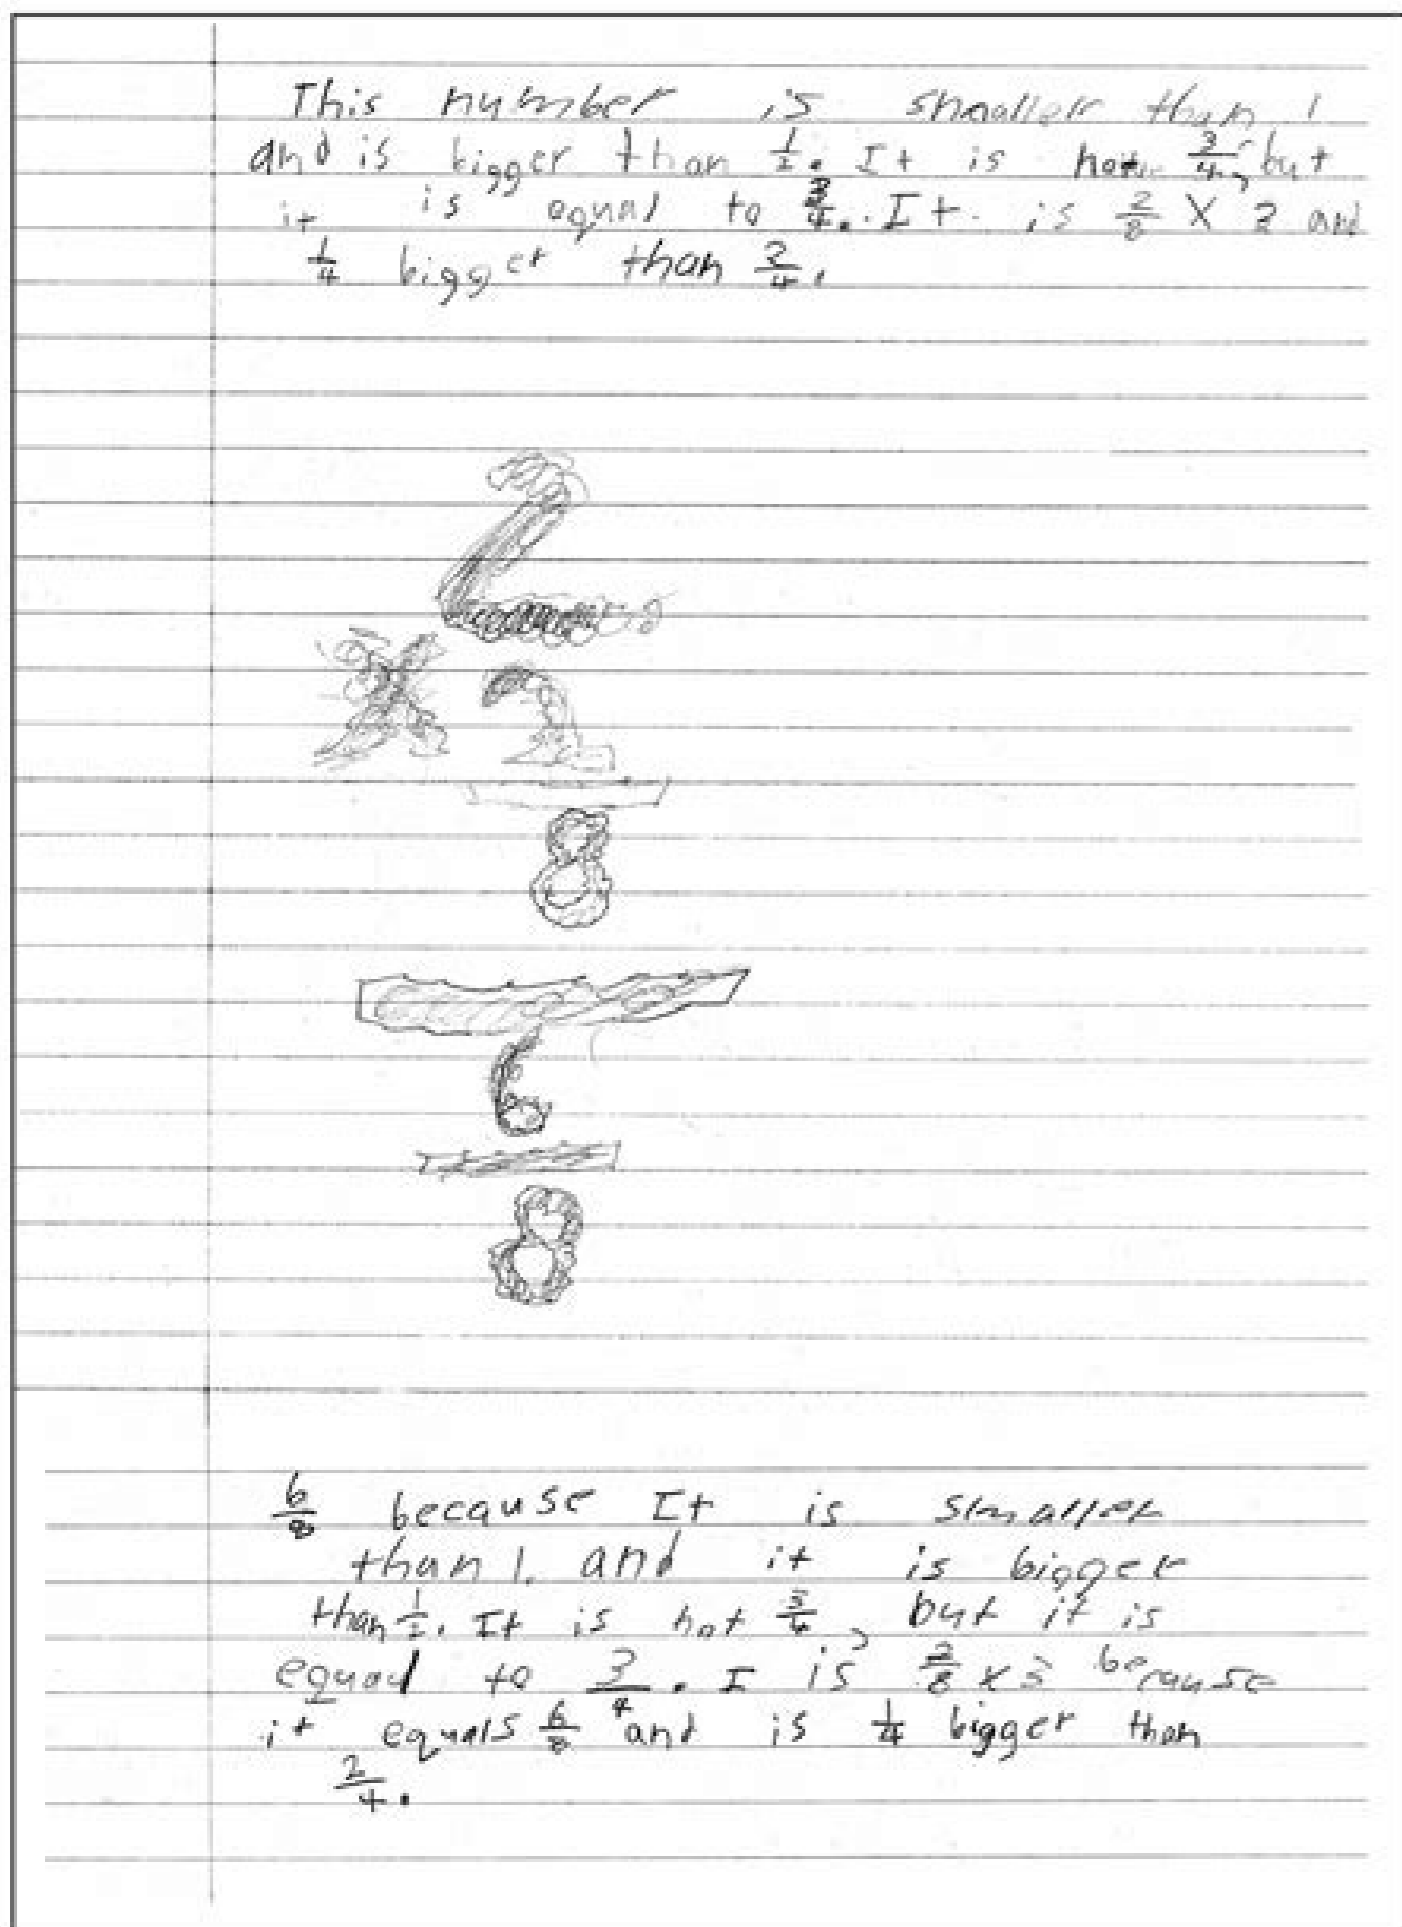 This number is smaller than 1
and is bigger than 1/2. It is not 3/4, but
it is equal to 3/4. It is 2/8 X 3 and
1/4 bigger than 2/4.
2
X 3
8
6
8
6/8 because It is smaller
than 1. and it is bigger
than 1/2. It is not 3/4, but it is
equal to 3/4. I is 2/8 x 3 because
it equals 6/8 and is 1/4 bigger than
2/4.